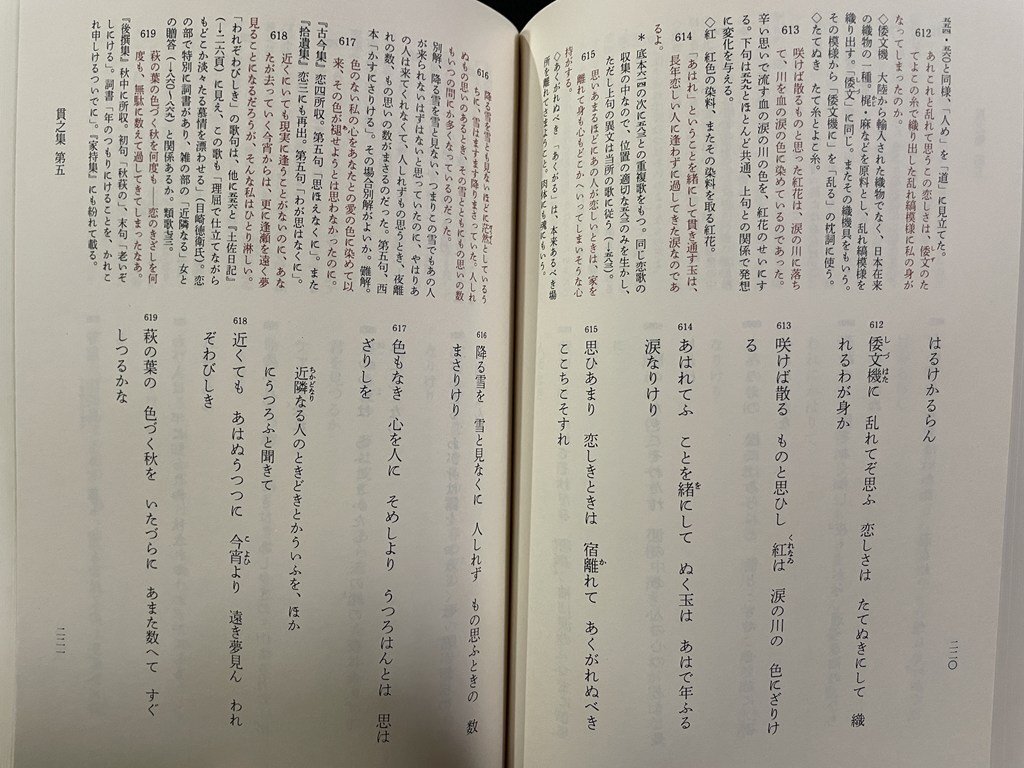 五五四・五六〇と同様、「人め」を「道」に見立てた。
612 あれこれと乱れて思うこの恋しさは、倭文のた
てよこの糸で織り出した乱れ縞模様に私の身が
なってしまったのか。
◇倭文機 大陸から輸入された織物でなく、日本在来
の織物の一種。梶・麻などを原料とし、乱れ縞模様を
織り出す。「倭文」に同じ。またその織機具をもいう。
その模様から「倭文機に」を「乱る」の枕詞に使う。
◇たてぬき たて糸とよこ糸。
613 咲けば散るものと思った紅花は、涙の川に落ち
て、川を血の涙の色に染めているのであった。
辛い思いで流す血の涙の川の色を、紅花のせいにす
る。下句は五五九とほとんど共通、上句との関係で発想
に変化を与える。
◇紅 紅色の染料、またその染料を取る紅花。
614 「あはれ」ということを緒にして貫き通す玉は、
長年恋しい人に逢わずに過してきた涙なのであ
るよ。
＊ 底本六一四の次に五六三との重複歌をもつ。同じ恋歌の
収集の中なので、位置の適切な五六三のみを生かし、
ただし上句の異文は当所の歌に従う（→五六三）。
615 思いあまるほどにあの人が恋しいときは、家を
離れて身も心もどこかへいってしまいそうな心
持がする。
◇あくがれぬべき 「あくがる」は、本来あるべき場
所を離れてさまようこと。肉体にも魂にもいう。
はるけかるらん
612 倭文機に 乱れてぞ思ふ 恋しさは たてぬきにして 織
れるわが身か
613 咲けば散る ものと思ひし 紅は 涙の川の 色にざりけ
る
614 あはれてふ ことを緒にして ぬく玉は あはで年ふる
涙なりけり
615 思ひあまり 恋しきときは 宿離れて あくがれぬべき
ここちこそすれ
二二〇
616 降る雪を雪とも見ないほどに茫然としているう
ちに、雪はますます降りまさっていた。人しれ
ぬもの思いのあるとき、その雪とともにもの思いの数
もいつの間にか多くなっているのだった。
別解、降る雪を雪と見ない、つまりこの雪でもあの人
が来られないはずはないと思っていたのに、やはりあ
の人は来てくれなくて、人しれずもの思うとき、夜離
れの数、もの思いの数がまさるのだった。第五句、西
本「かずにさりける」。その場合別解がよいか。難解。
617 色のない私の心をあなたとの愛の色に染めて以
来、その色が褪せようとは思わなかったのに。
『古今集』恋四所収、第五句「思ほえなくに」。また
『拾遺集』恋三にも再出。第五句「わが思はなくに」。
618 近くにいても現実に逢うことがないのに、あな
たが去っていく今宵からは、更に逢瀬を遠く夢
見ることになるだろうが、そんな私はひとり淋しい。
「われぞわびしき」の歌句は、他に五五六と『土佐日記』
（→二六頁）に見え、この歌も「理屈で仕立てながら
もどこか淡々たる慕情を漂わせる」（目崎徳衛氏）。恋
の部で特別に詞書があり、雑の部の「近隣なる」女と
の贈答（→八六〇～八六二）と関係あるか。類歌七三三。
619 萩の葉の色づく秋を何度も――恋のきざしを何
度も、無駄に数えて過してきてしまったなあ。
『後撰集』秋中に所収、初句「秋萩の」、末句「老いぞ
しにける」。詞書「年のつもりにけることを、かれこ
れ申しけるついでに」。『家持集』にも紛れて載る。
貫之集 第五
616 降る雪を 雪と見なくに 人しれず もの思ふときの 数
まさりけり
617 色もなき 心を人に そめしより うつろはんとは 思は
ざりしを
近隣なる人のときどきとかういふを、ほか
にうつろふと聞きて
618 近くても あはぬうつつに 今宵より 遠き夢見ん われ
ぞわびしき
619 萩の葉の 色づく秋を いたづらに あまた数へて すぐ
しつるかな
二二一